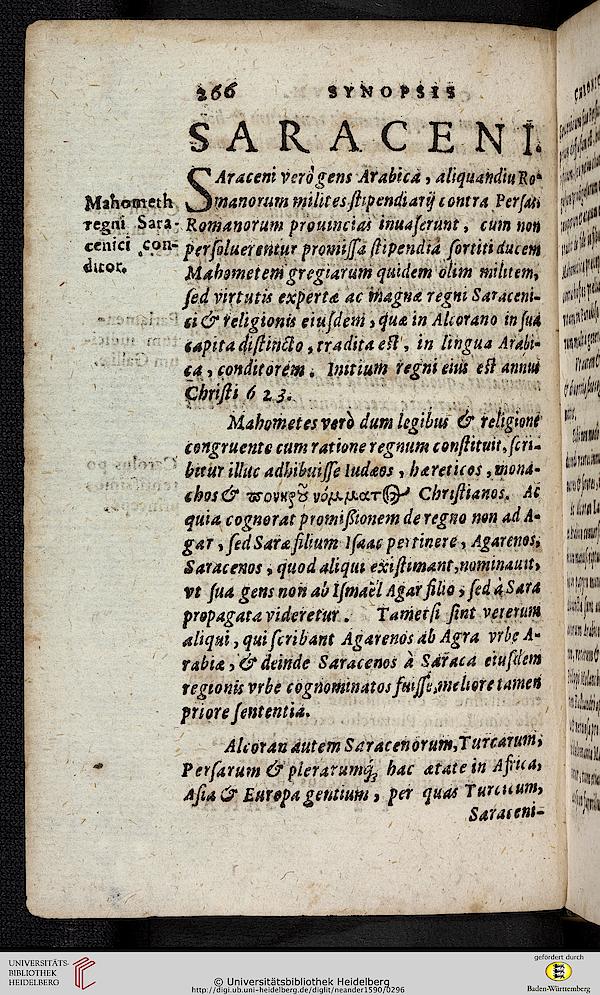 266 SYNOPSIS
SARACENI.
SAraceni verò gens Arabica, aliquandiu Ro-
manorum milites stipendiarij contra Persas
Romanorum prouincias inuaserunt, cum non
persoluerentur promissa stipendia sortiti ducem
Mahometem gregiarum quidem olim militem,
sed virtutis expertæ ac magnæ regni Saraceni-
ci & religionis eiusdem, quæ in Alcorano in sua
capita distincto, tradita est, in lingua Arabi-
ca, conditorem. Initium regni eius est annus
Christi 623.
Mahometh
regni Sara-
cenici con-
ditor.
Mahometes verò dum legibus & religione
congruente cum ratione regnum constituit, scri-
bitur illuc adhibuisse Iudæos, hæreticos, mona-
chos & Christianos. Ac
quia cognorat promißionem de regno non ad A-
gar, sed Saræ filium Isaac pertinere, Agarenos,
Saracenos, quod aliqui existimant, nominauit,
vt sua gens non ab Ismaël Agar filio, sed à Sara
propagata videretur. Tametsi sint veterum
aliqui, qui scribant Agarenos ab Agra vrbe A-
rabiæ, & deinde Saracenos à Saraca eiusdem
regionis vrbe cognominatos fuisse, meliore tamen
priore sententia.
Alcoran autem Saracenorum, Turcarum,
Persarum & plerarumq; hac ætate in Africa,
Asia & Europa gentium, per quas Turcicum,
Saraceni-
UNIVERSITÄTS-
BIBLIOTHEK
HEIDELBERG
© Universitätsbibliothek Heidelberg
http://digi.ub.uni-heidelberg.de/diglit/neander1590/0296
gefördert durch
Baden-Württemberg